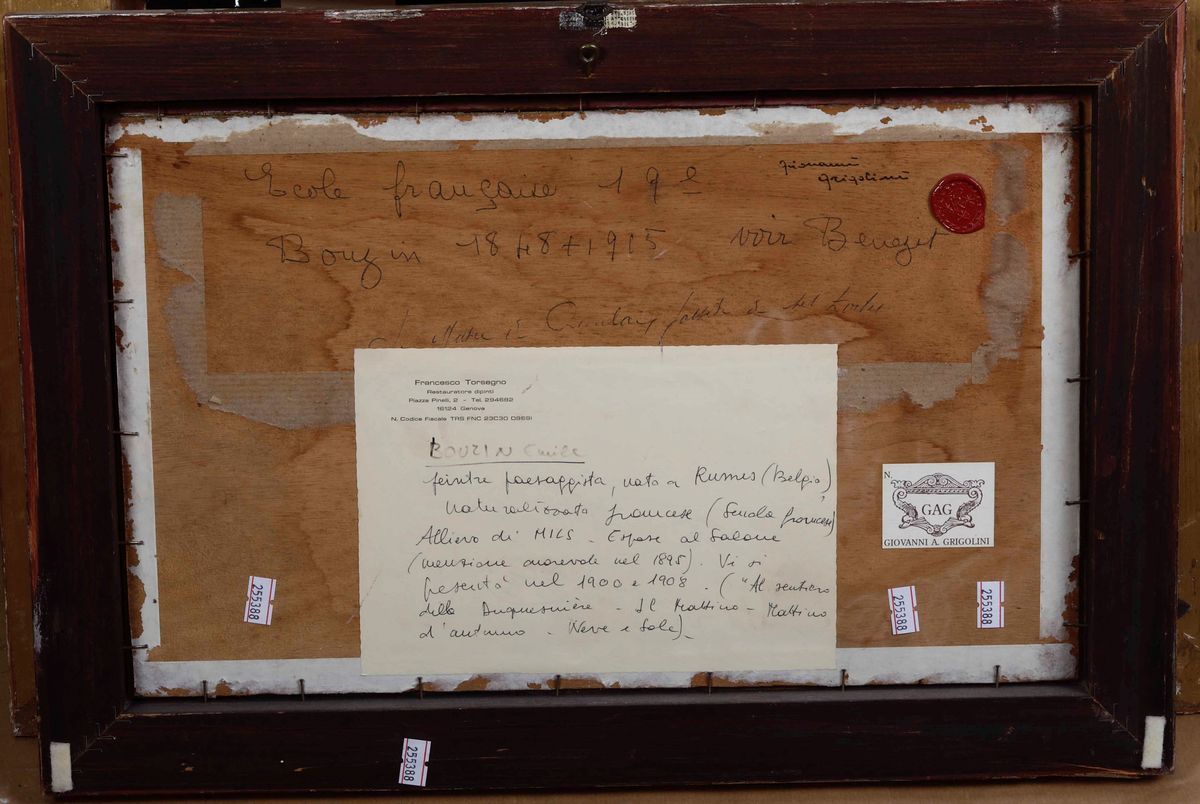 Ecole française 19e
Giovanni
Grigolini
Bouzin 1848+1915 voir Benezet
Francesco Torsegno
Restauratore dipinti
Piazza Pinelli, 2 - Tel. 294682
16124 Genova
N. Codice Fiscale TRS FNC 23C30 D969I
BOUZIN Emile
peintre paesaggista, nato a Rumes (Belgio)
naturalizzato francese (Scuola francese)
Allievo di MILS - Espose al Salone
(menzione onorevole nel 1895). Vi si
presentò nel 1900 e 1908 - ("Al sentiero
della Duquesnière - Il Mattino - Mattino
d'autunno - Neve e Sole).
N.
GAG
GIOVANNI A. GRIGOLINI
255388
255388
255388
255388